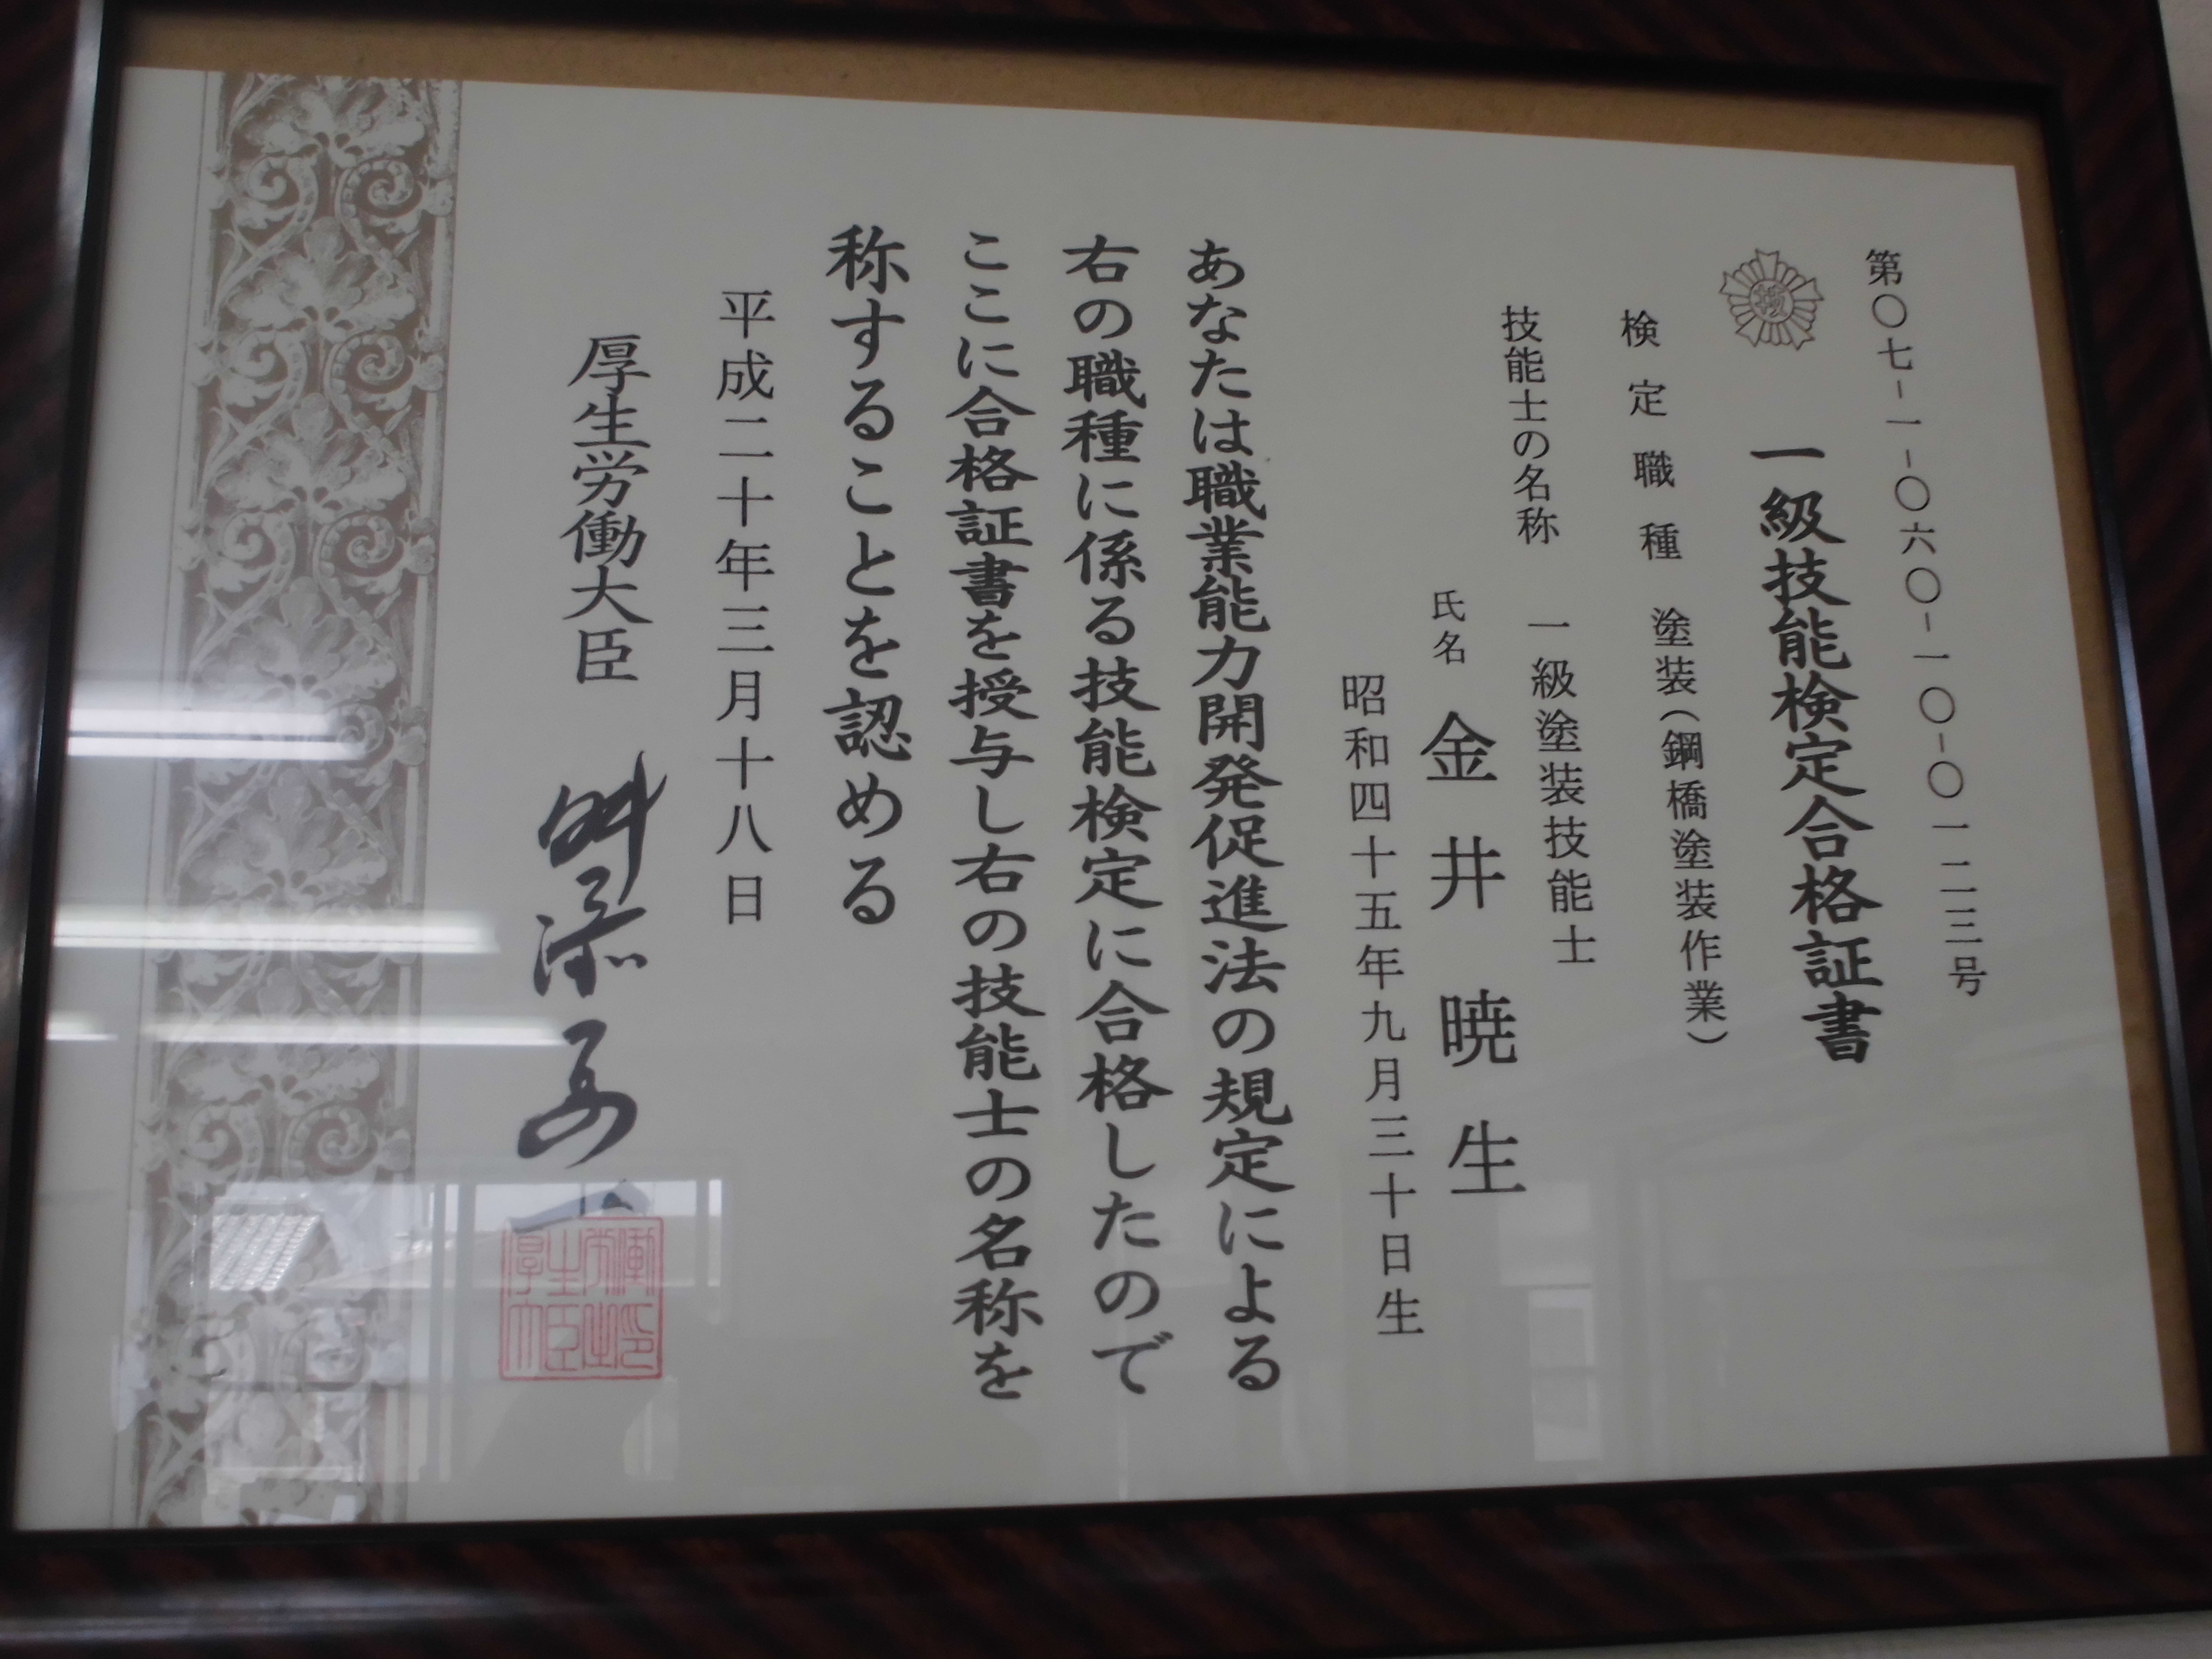 第〇七-一-〇六〇-一〇-〇一一二三号
技
一級技能検定合格証書
検定職種 塗装(鋼橋塗装作業)
技能士の名称 一級塗装技能士
氏名 金井暁生
昭和四十五年九月三十日生
あなたは職業能力開発促進法の規定による
右の職種に係る技能検定に合格したので
ここに合格証書を授与し右の技能士の名称を
称することを認める
平成二十年三月十八日
厚生労働大臣 舛添要一
厚生労働大臣之印